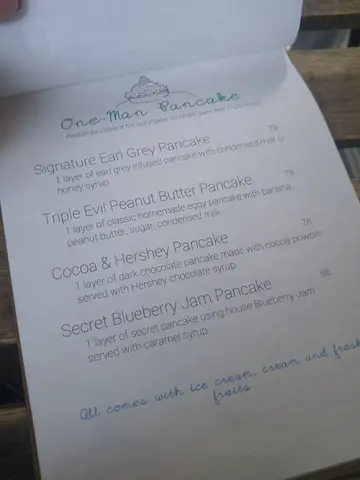 One Man Pancake
Please be patient for our made to order pancake (~20 mins)
Signature Earl Grey Pancake 78
1 layer of earl grey infused pancake with condensed milk
honey syrup
Triple Evil Peanut Butter Pancake 78
1 layer of classic homemade eggy pancake with banana,
peanut butter, sugar, condensed milk
Cocoa & Hershey Pancake 78
1 layer of dark chocolate pancake made with cocoa powder
served with Hershey chocolate syrup
Secret Blueberry Jam Pancake 86
1 layer of secret pancake using house Blueberry Jam
served with caramel syrup
All comes with ice cream, cream and fresh
fruits